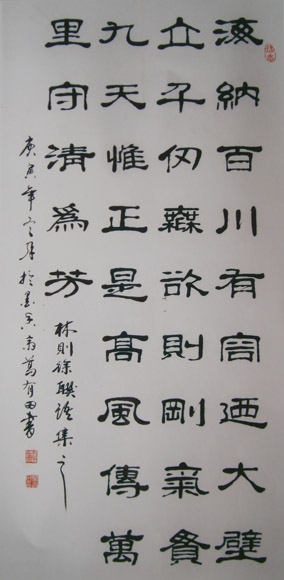 海納百川有容迺大壁
立千仞無欲則剛氣貫
九天惟正是髙風傳萬
里守清爲芳
林則徐聯語集之
庚寅年於墨香有田書